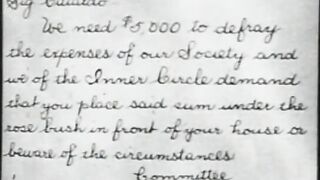 Sig
We need $5,000 to defray
the expenses of our Society and
we of the Inner Circle demand
that you place said sum under the
rose bush in front of your house or
beware of the circumstances
Committee